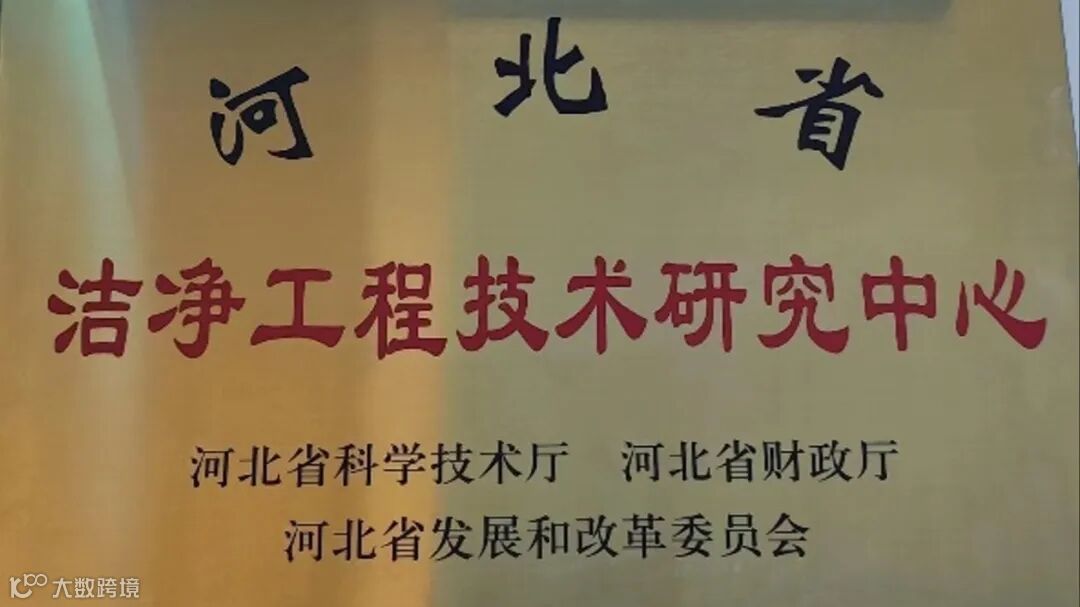 河北省
洁净工程技术研究中心
河北省科学技术厅 河北省财政厅
河北省发展和改革委员会
大数跨境